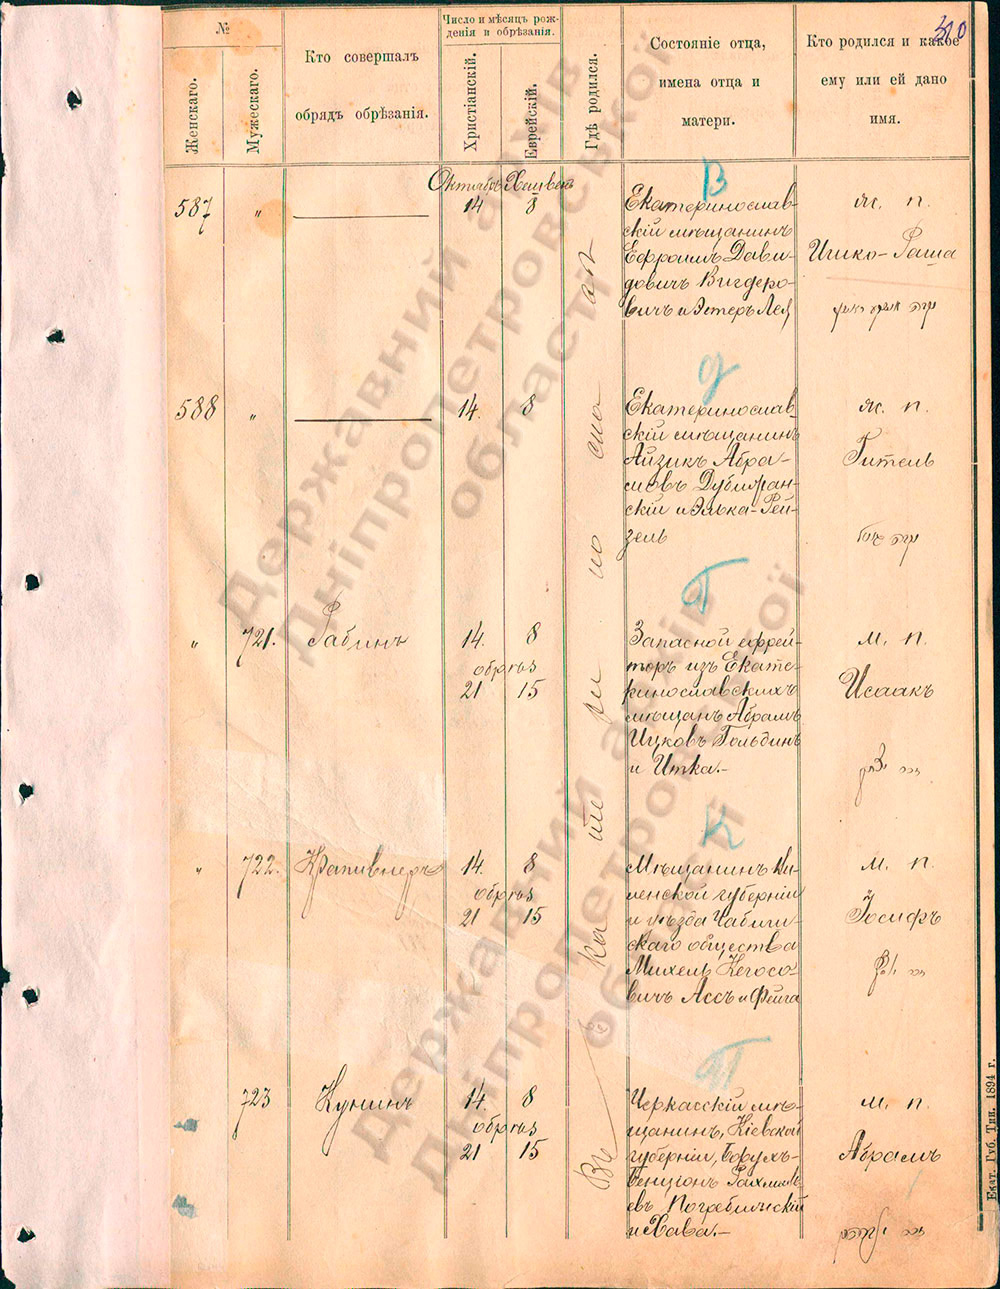 310
№
Женскаго.
Мужескаго.
Кто совершалъ
обрядъ обрѣзанія.
Число и мѣсяцъ рож-
денія и обрѣзанія.
Христіанскій.
Еврейскій.
Гдѣ родился.
Состояніе отца,
имена отца и
матери.
Кто родился и какое
ему или ей дано
имя.
Октябрь Хешвонъ
В
587 „ 14 8
Екатеринослав-
скій мѣщанинъ
Ефроимъ Дави-
довичъ Вигдеро-
вичъ и Эстеръ Лея
ж. п.
Ишко-Раша
Д
588 „ 14. 8
Екатеринослав-
скій мѣщанинъ
Айзикъ Абра-
мовъ
скій и Элька-Рей-
зель
ж. п.
Гитель
Г
„ 721. Рабинъ
14. 8
обрѣз
21 15
Запасной ефрей-
торъ изъ Екате-
ринославскихъ
мѣщанъ Абрамъ
Ицковъ Гольдинъ
и Итка.-
м. п.
Исаакъ
К
„ 722. Крапивнеръ
14. 8
обрѣз
21 15
Мѣщанинъ Ви-
ленской губерніи
и уѣзда
скаго общества
Михель
вичъ Ассъ и Фейга
м. п.
Іосифъ
П
723 Кунинъ
14. 8
обрѣз
21 15
Черкасскій мѣ-
щанинъ, Кіевской
губерніи, Борухъ-
Бенціонъ Рахмиль-
евъ Погребижскій
и Хава.-
м. п.
Абрамъ
Въ
Екат. Губ. Тип. 1894 г.
Державний архів
Дніпропетровської
області
Державний архів
Дніпропетровської
області